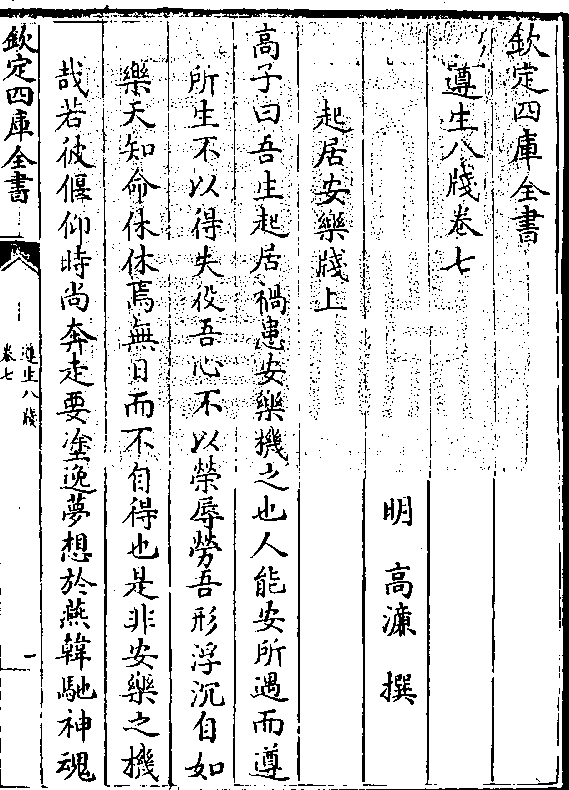 欽定四庫全書
遵生八牋卷七
明　高濂　撰
起居安樂牋上
高子曰吾生起居禍患安樂機之也人能安所遇而遵
所生不以得失役吾心不以榮辱勞吾形浮沉自如
樂天知命休休焉無日而不自得也是非安樂之機
哉若彼偃仰時尚奔走要塗逸夢想於燕韓馳神魂
欽定四庫全書
遵生八牋
卷七
一